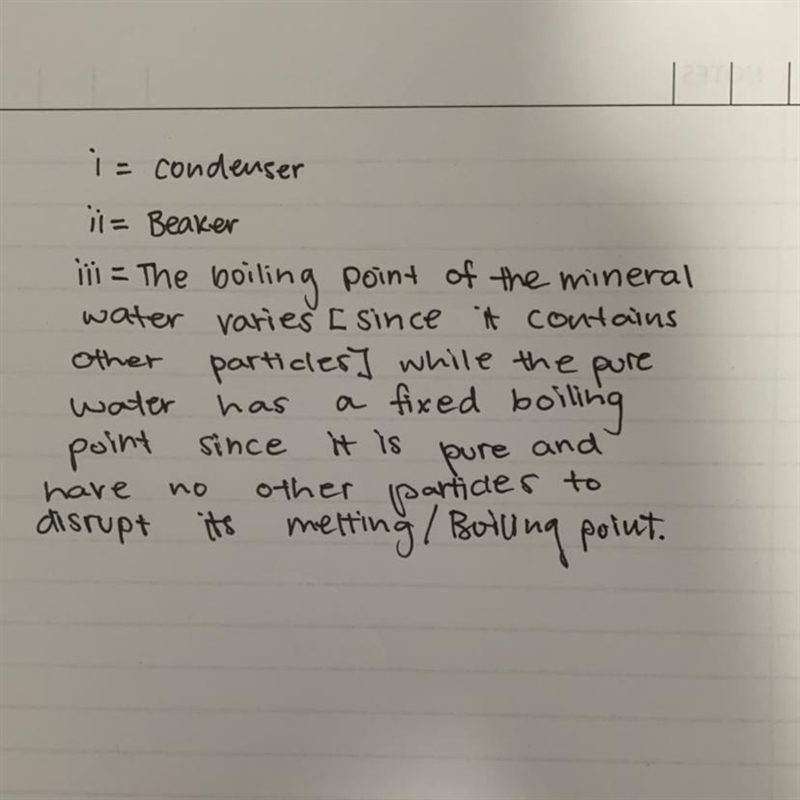 NOTES
i = condenser
ii = Beaker
iii = The boiling point of the mineral
water varies [since it contains
other particles] while the pure
water has a fixed boiling
point since it is pure and
have no other particles to
disrupt its melting/Boiling point.